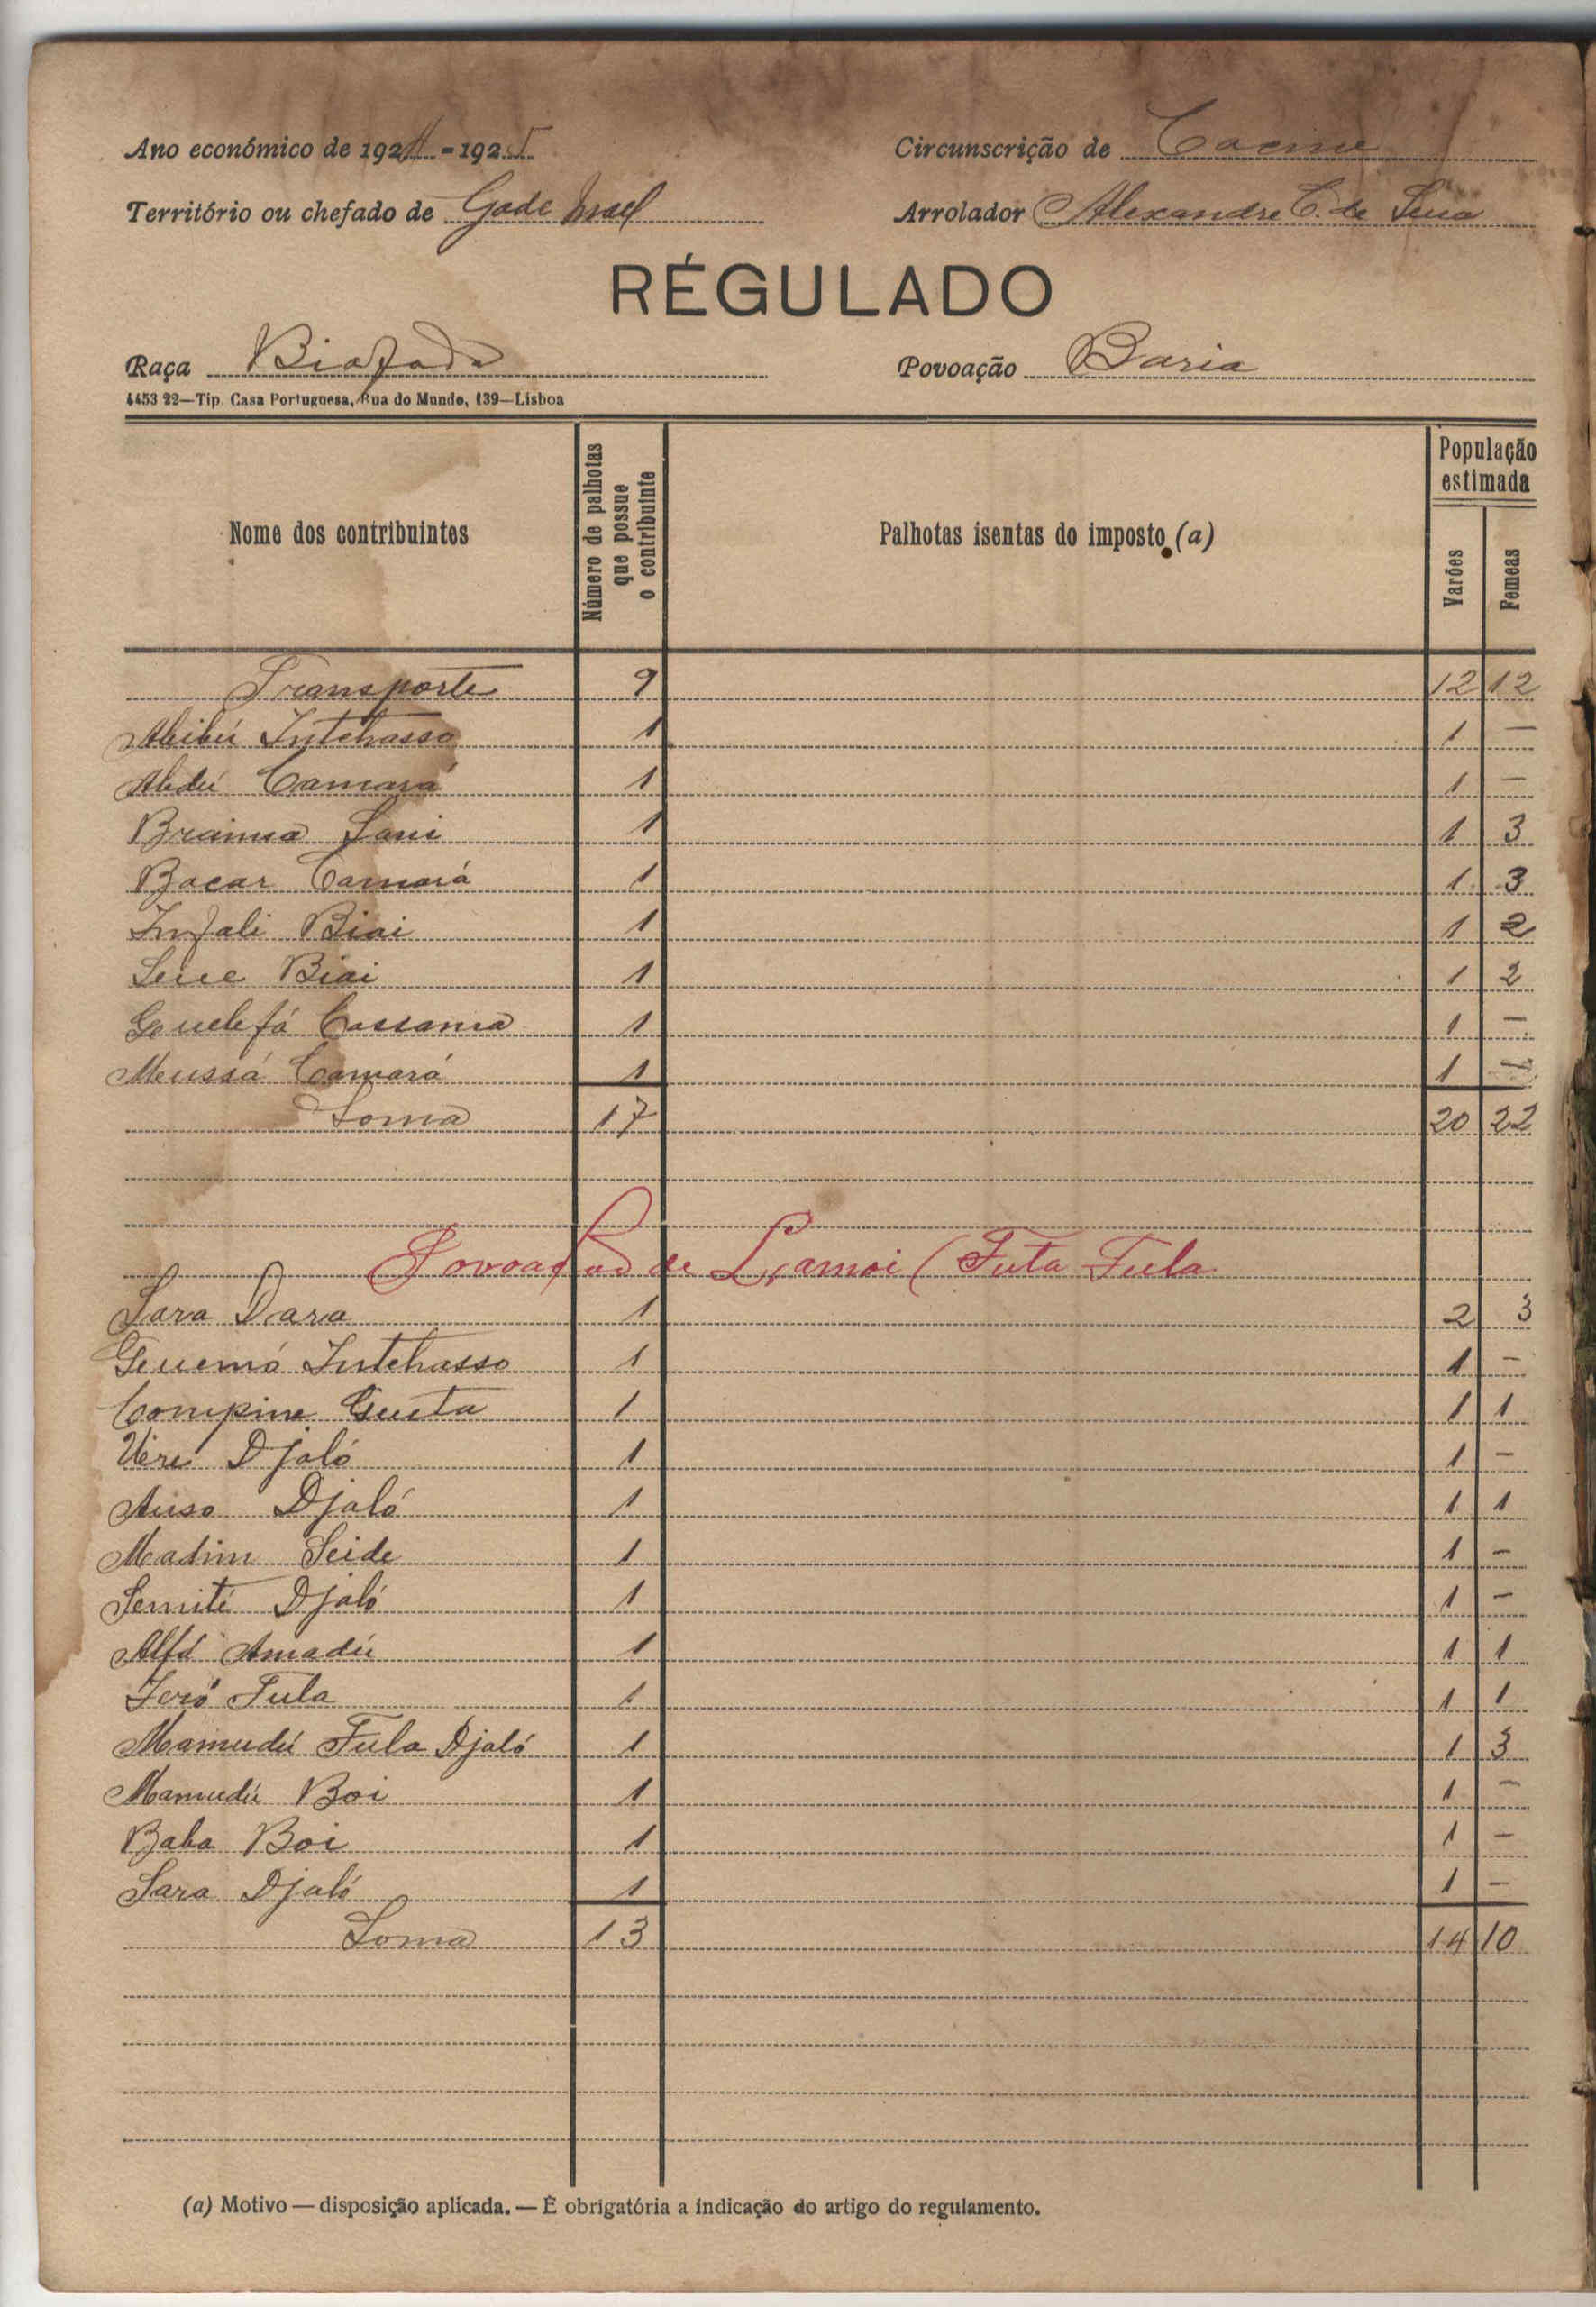 Ano económico de 1924-1925
Circunscrição de Cacine
Território ou chefado de Gade Mael
Arrolador Alexandre C. de Sena
RÉGULADO
Raça Biafada
Povoação Baria
4453 22—Tip. Casa Portuguesa, Rua do Mundo, 139—Lisboa
Nome dos contribuintes Número de palhotas que possue o contribuinte Palhotas isentas do imposto (a) População estimada Varões Femeas
Transporte 9 12 12
Abibú Intchasso 1 1 —
Abdú Camará 1 1 —
Braima Sani 1 1 3
Bacar Camará 1 1 3
Infali Biai 1 1 2
Seue Biai 1 1 2
Guelefá Cassama 1 1 —
Mussá Camará 1 1
Soma 17 20 22
Povoação de (Futa Fula
Sara Dara 1 2 3
Guemó Intchasso 1 1 —
Compine Gueta 1 1 1
Uéri Djaló 1 1 —
Auso Djaló 1 1 1
Madim Seide 1 1 —
Semité Djaló 1 1 —
Alfá Amadú 1 1 1
Ioró Fula 1 1 1
Mamudú Fula Djaló 1 1 3
Mamudú Boi 1 1 —
Baba Boi 1 1 —
Sara Djaló 1 1 —
Soma 13 14 10
(a) Motivo — disposição aplicada. — É obrigatória a indicação do artigo do regulamento.